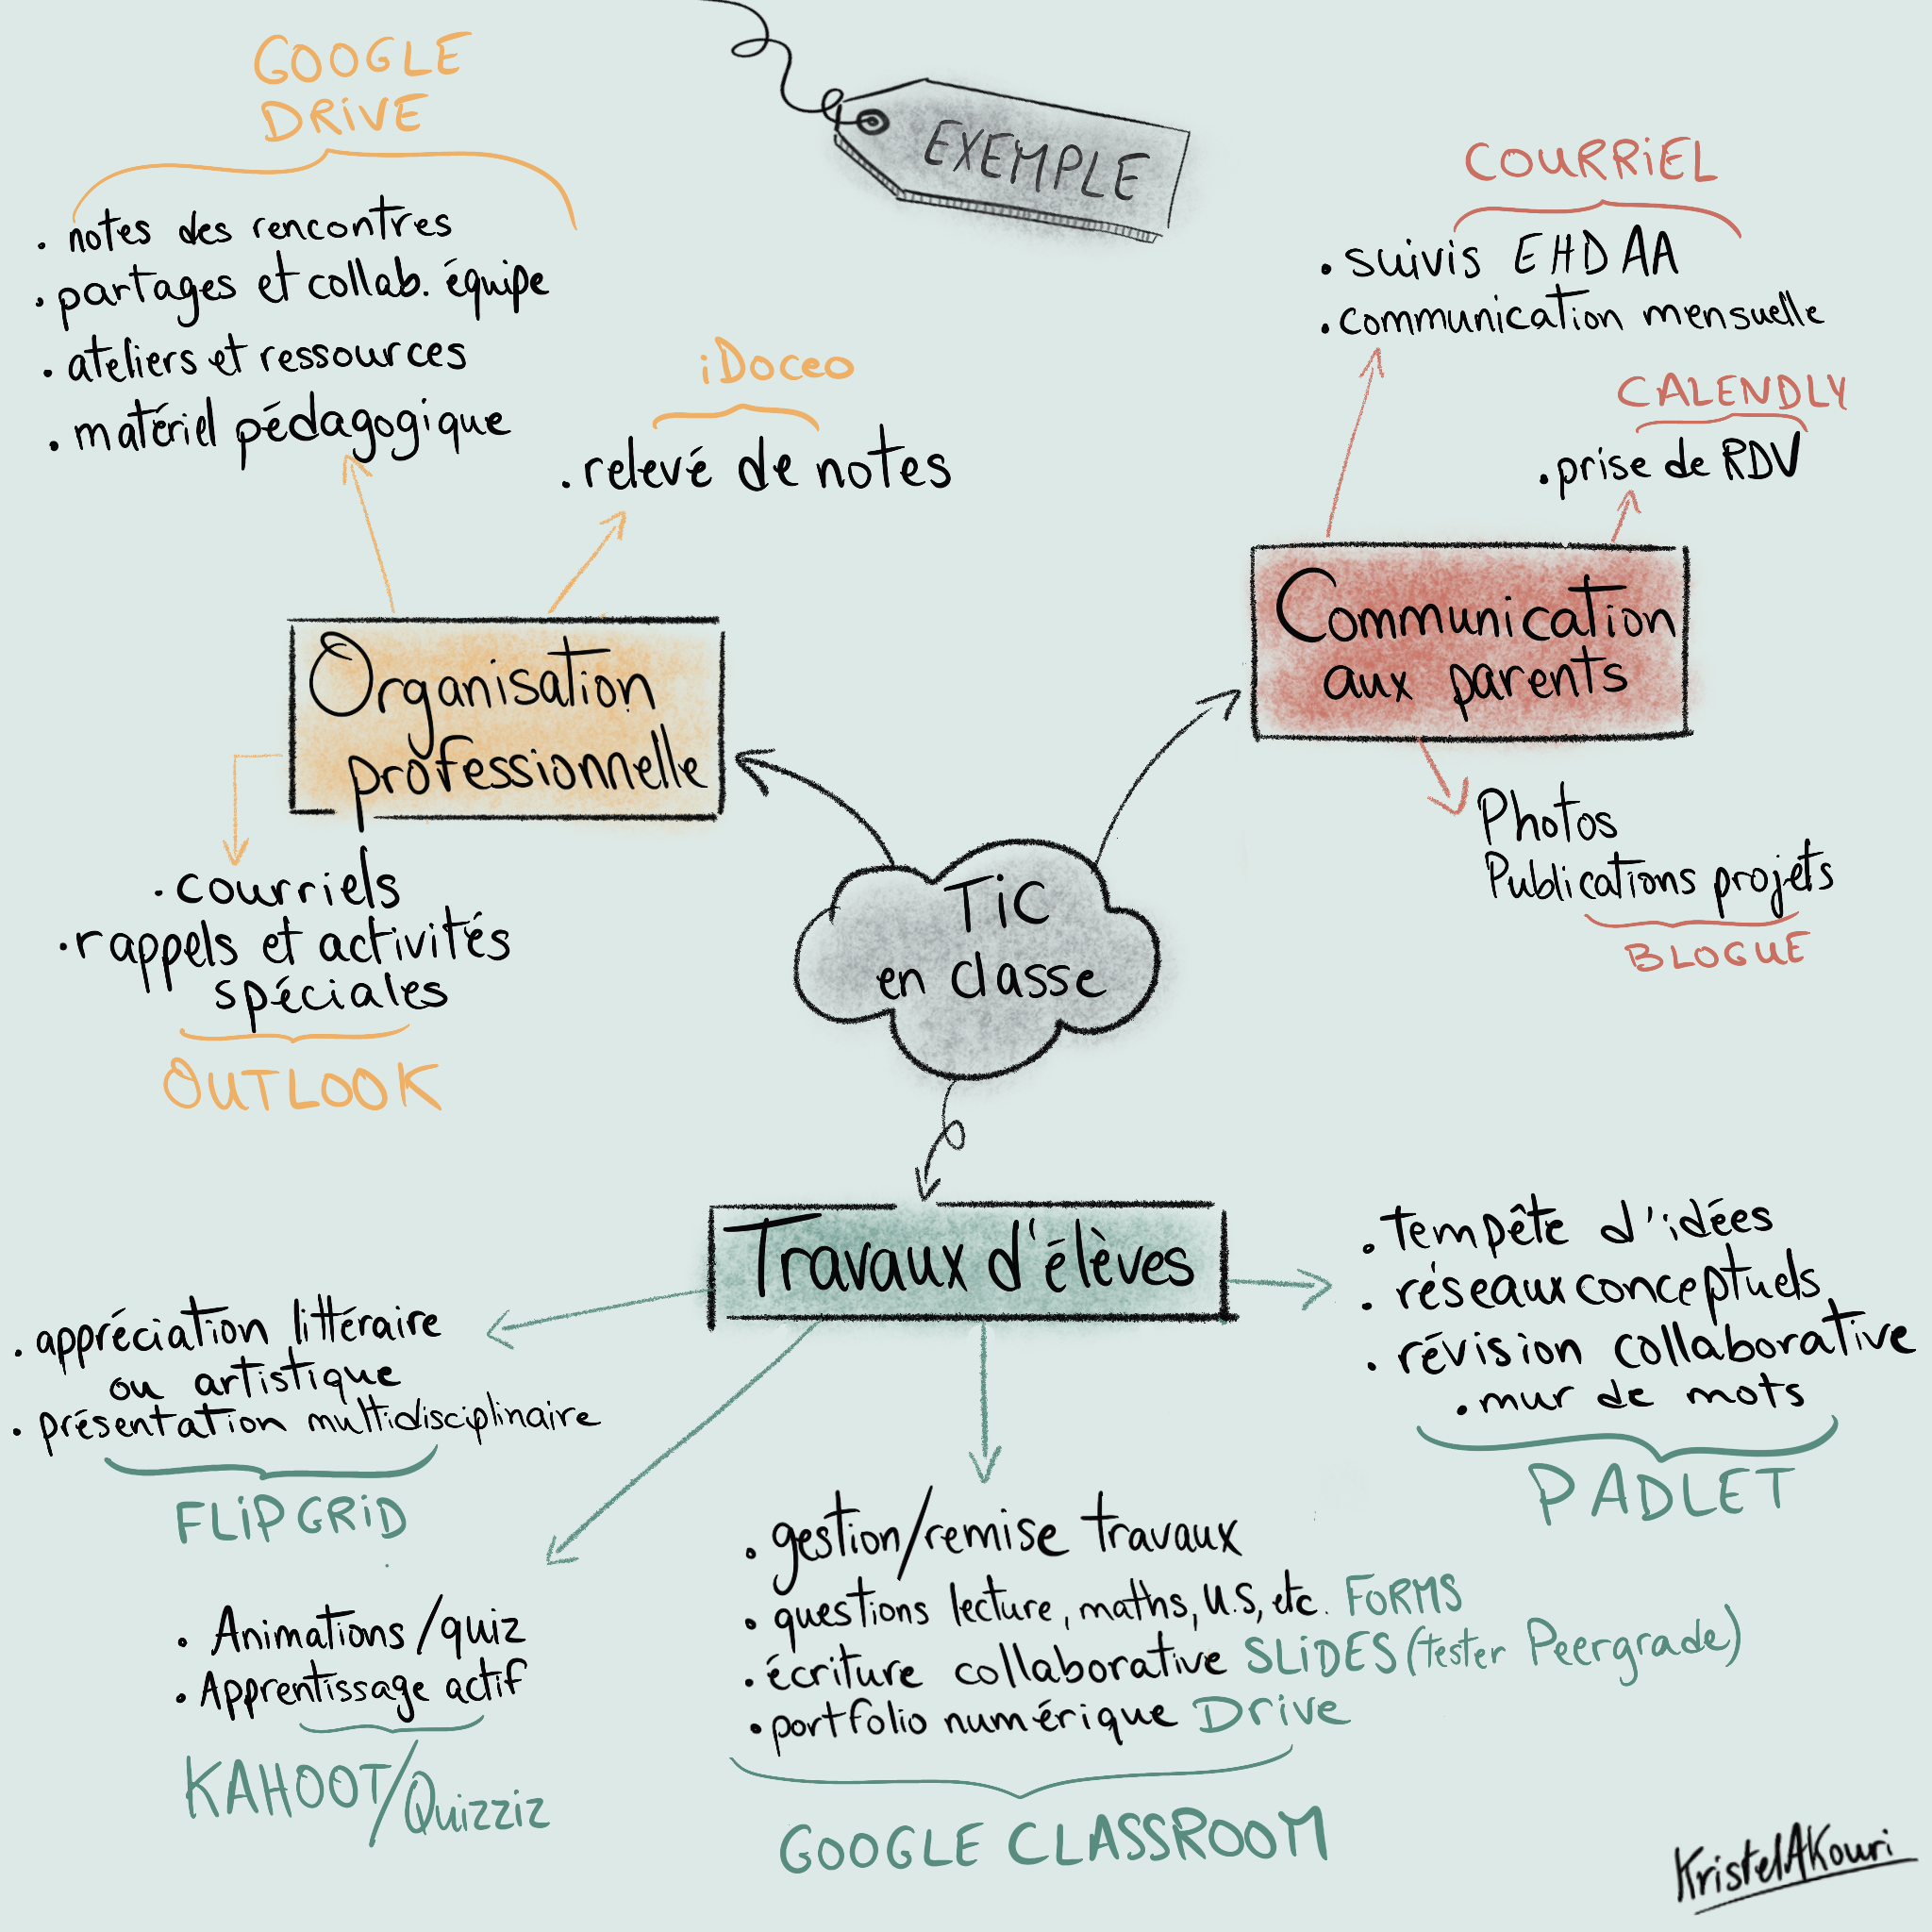 EXEMPLE
GOOGLE
DRiVE
. notes des rencontres
. partages et collab. équipe
. ateliers et ressources
. matériel pédagogique
iDoceo
. relevé de notes
COURRiEL
. suivis EHDAA
. communication mensuelle
CALENDLY
. prise de RDV
Organisation
professionnelle
Communication
aux parents
Photos
Publications projets
BLOGUE
. courriels
. rappels et activités
spéciales
OUTLOOK
TiC
en classe
Travaux d'élèves
. appréciation littéraire
ou artistique
. présentation multidisciplinaire
FLiPGRiD
. tempête d'idées
. réseaux conceptuels
. révision collaborative
. mur de mots
PADLET
. Animations/quiz
. Apprentissage actif
KAHOOT/Quizziz
. gestion/remise travaux
. questions lecture, maths, U.S, etc. FORMS
. écriture collaborative SLiDES (tester Peergrade)
. portfolio numérique Drive
GOOGLE CLASSROOM
KristelAKouri